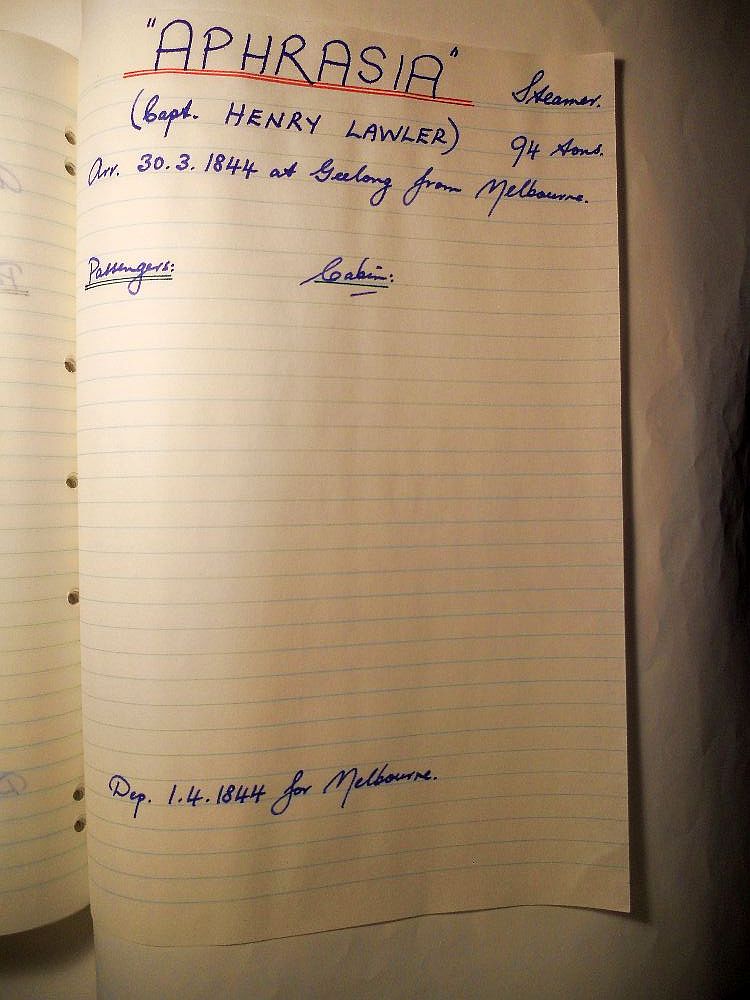 "APHRASIA" Steamer.
(Capt. HENRY LAWLER) 94 tons.
Arr. 30.3.1844 at Geelong from Melbourne.
Passengers: Cabin:
Dep. 1.4.1844 for Melbourne.